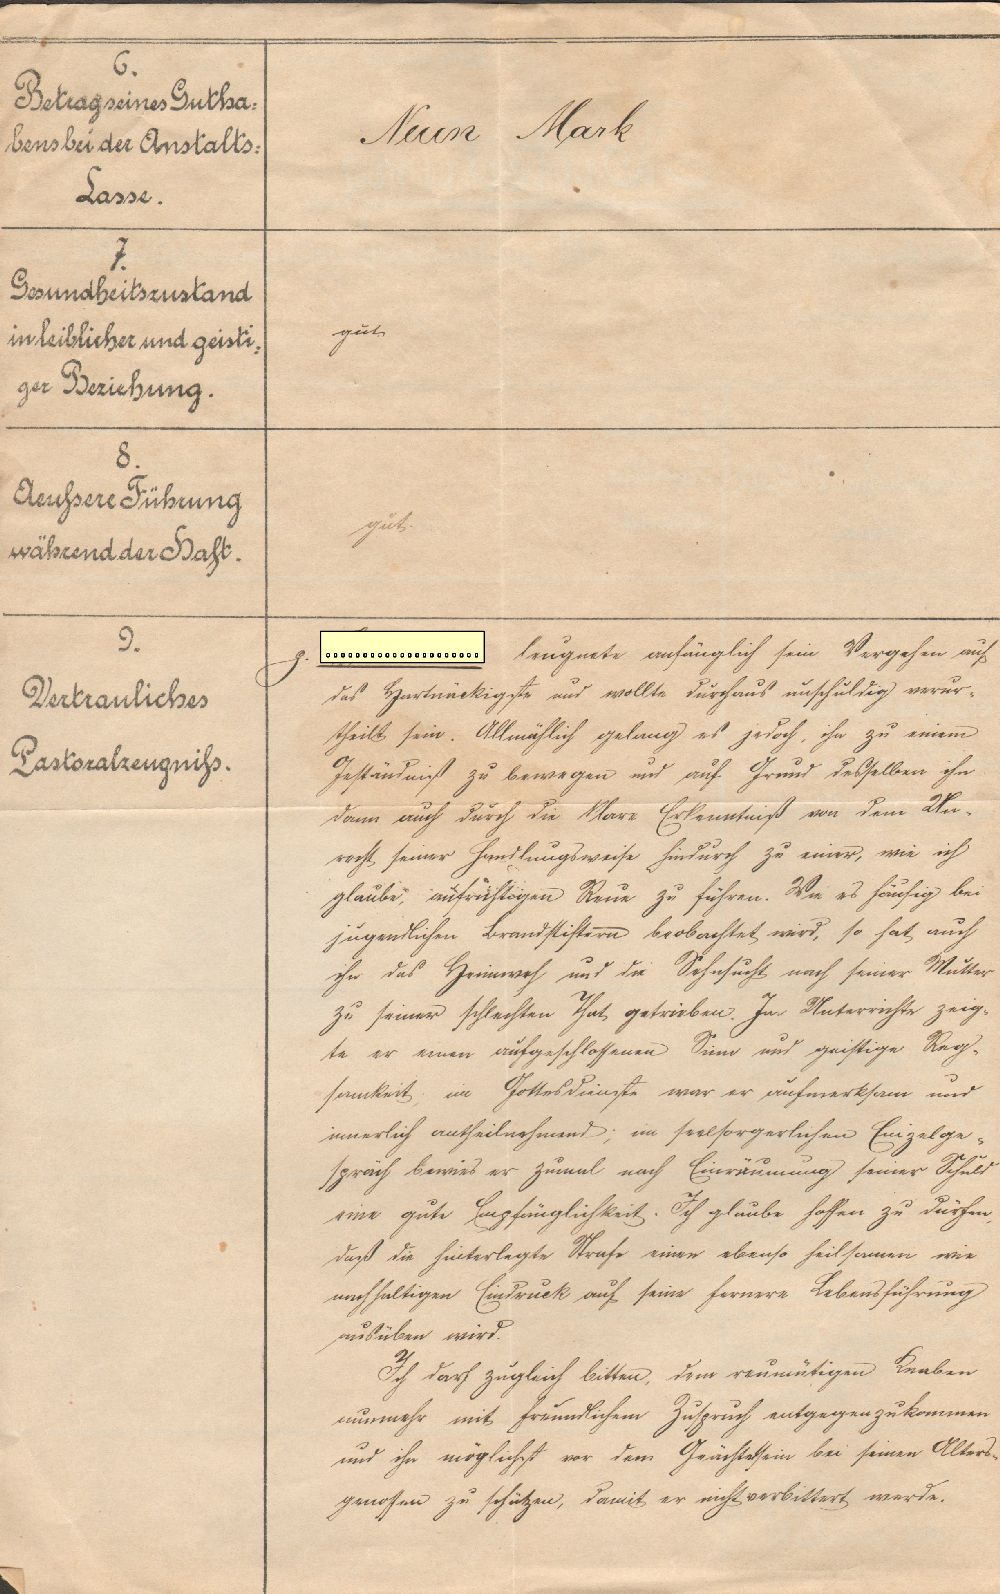 6.
Betrag seines Gutha-
bens bei der Anstalts-
Casse.
Neun Mark
7.
Gesundheitszustand
in leiblicher und geisti-
ger Beziehung.
gut
8.
Aeußere Führung
während der Haft.
gut.
9.
Vertrauliches
Pastoralzeugniß.
p. leugnete anfänglich sein Vergehen auf
das Hartnäckigste und wollte durchaus unschuldig verur-
theilt sein. Allmählich gelang es jedoch, ihn zu einem
Geständniß zu bewegen und auf Grund desselben ihn
dann auch durch die klare Erkenntniß von dem Un-
recht seiner Handlungsweise hindurch zu einer, wie ich
glaube, aufrichtigen Reue zu führen. Wie es häufig bei
jugendlichen Brandstiftern beobachtet wird, so hat auch
ihn das Heimweh und die Sehnsucht nach seiner Mutter
zu seiner schlechten That getrieben. Im Unterrichte zeig-
te er einen aufgeschlossenen Sinn und geistige Reg-
samkeit; im Gottesdienste war er aufmerksam und
innerlich antheilnehmend; im seelsorgerlichen Einzelge-
spräch bewies er zumal nach Einräumung seiner Schuld
eine gute Empfänglichkeit. Ich glaube hoffen zu dürfen,
daß die hinterlegte Strafe einen ebenso heilsamen wie
nachhaltigen Eindruck auf seine fernere Lebensführung
ausüben wird.
Ich darf zugleich bitten, dem reumütigen Knaben
nunmehr mit freundlichem Zuspruch entgegenzukommen
und ihn möglichst vor dem Geächtetsein bei seinen Alters-
genossen zu schützen, damit er nicht verbittert werde.